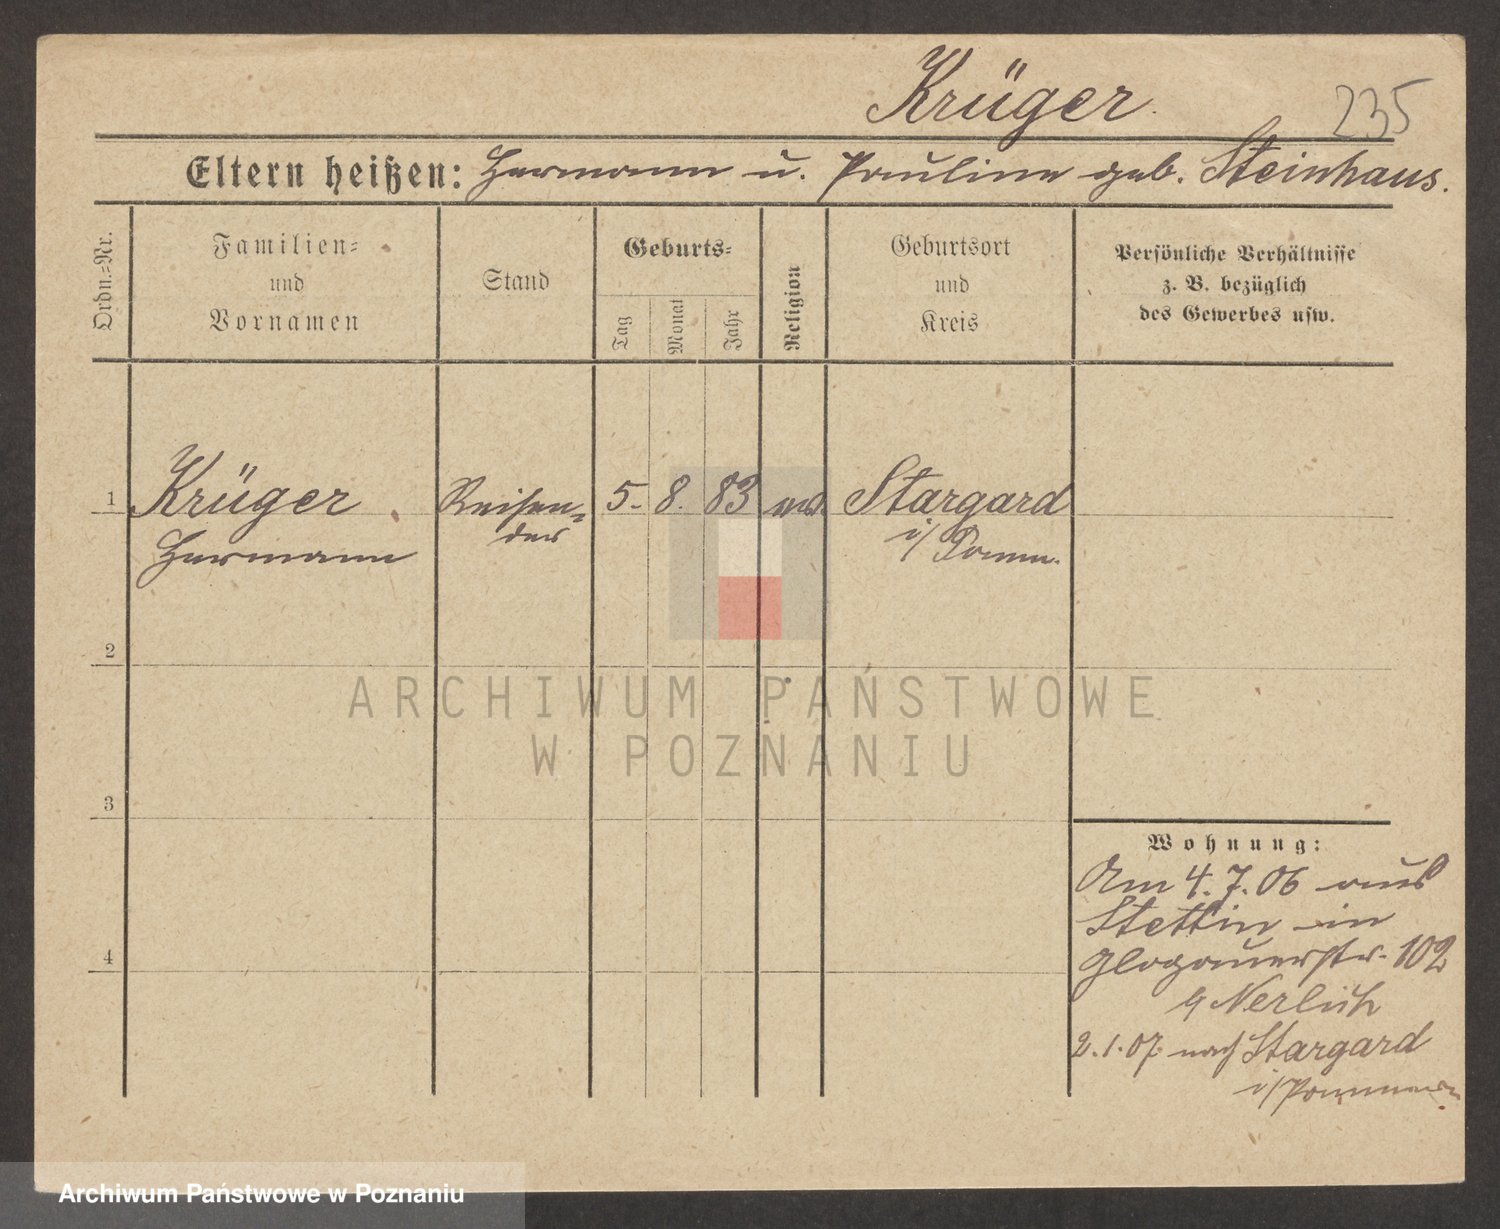 Krüger.
235
Eltern heißen: Hermann u. Pauline geb. Steinhaus.
Ordn.=Nr.
Familien=
und
Vornamen
Stand
Geburts=
Tag
Monat
Jahr
Religion
Geburtsort
und
Kreis
Persönliche Verhältnisse
z. B. bezüglich
des Gewerbes usw.
1
Krüger
Hermann
Reisen=
der
5. 8. 83
Stargard
i/ Pomm.
2
3
4
ARCHIWUM PAŃSTWOWE
W POZNANIU
Wohnung:
Am 4. 7. 06 aus
Stettin in
Glogauerstr. 102
Nerlich
2. 1. 07. nach Stargard
i/Pommern
Archiwum Państwowe w Poznaniu